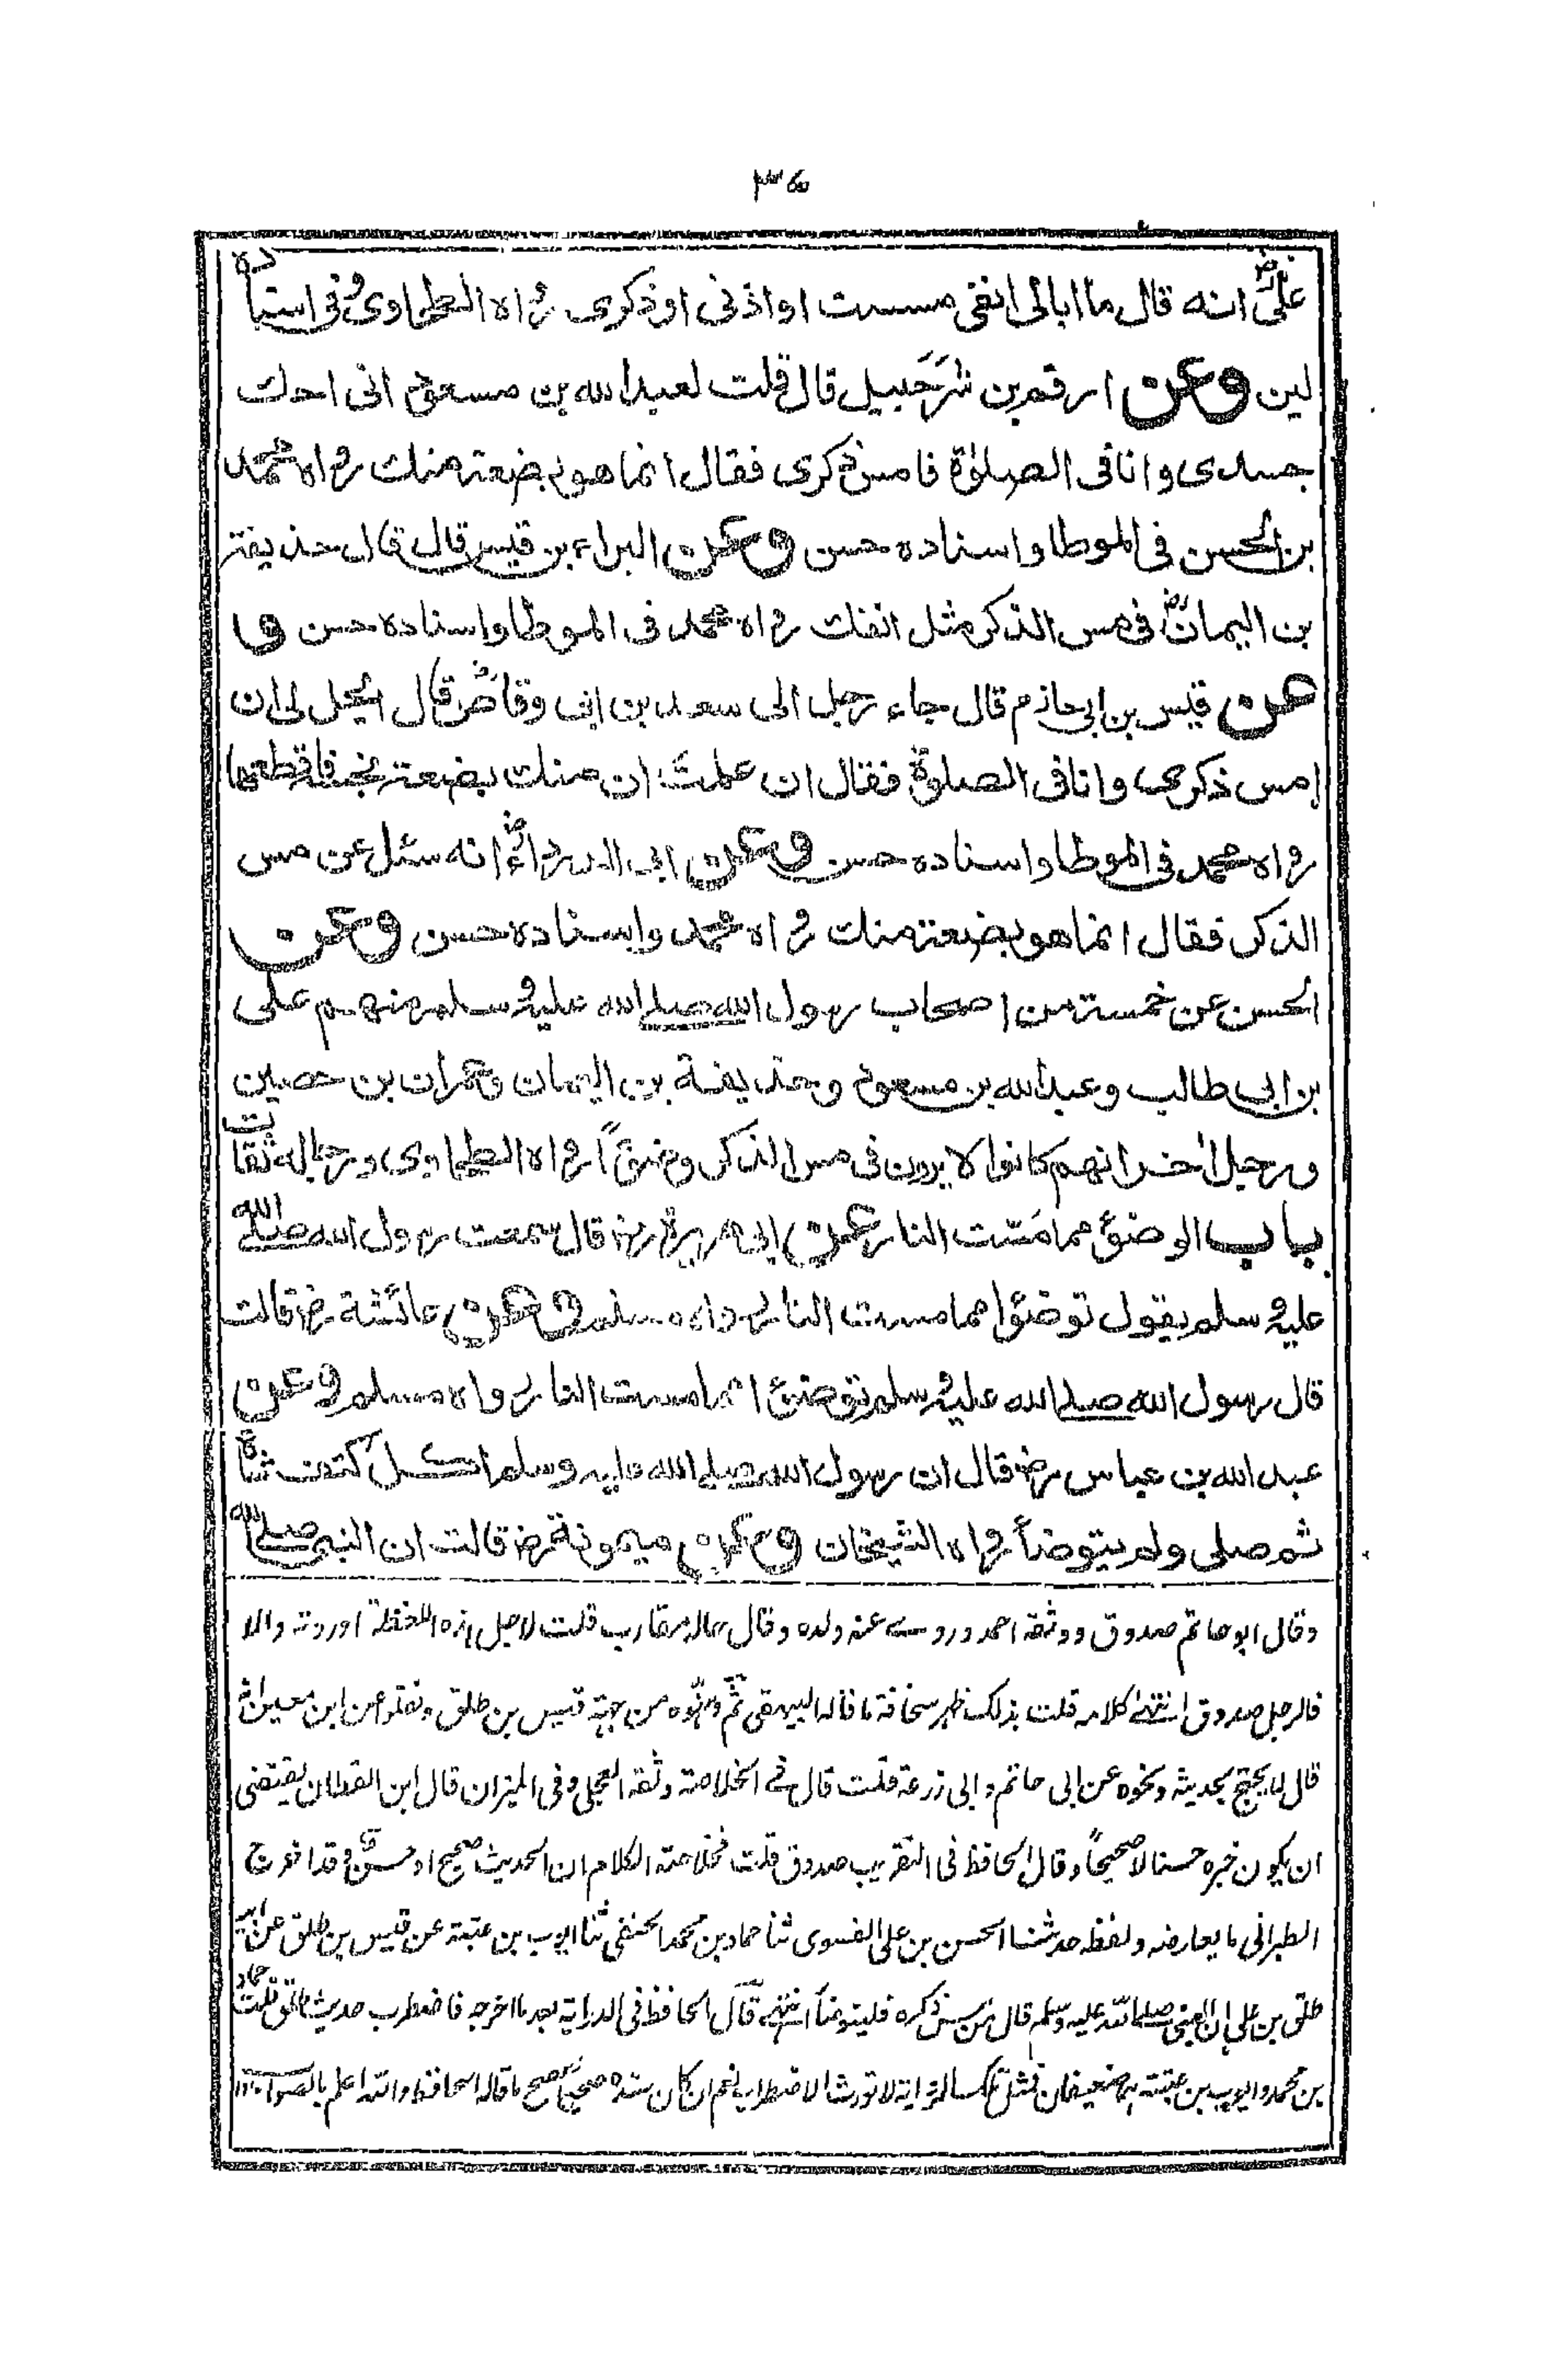 ٣٤
علىؓ انه قال ما ابالى انفى مسست او اذنى او ذكرى رواه الطحاوى وفى اسناده
لين وعن ارقم بن شرحبيل قال قلت لعبد الله بن مسعود انى احك
جسدى وانا فى الصلوٰة فامس ذكرى فقال انما هو بضعة منك رواه محمد
بن الحسن فى الموطا واسناده حسن وعن البراء بن قيس قال قال حذيفة
بن اليمانؓ فى مس الذكر مثل انفك رواه محمد فى الموطا واسناده حسن و
عن قيس بن ابى حازم قال جاء رجل الى سعد بن ابى وقاصؓ قال ايحل لى ان
امس ذكرى وانا فى الصلوة فقال ان علمت ان منك بضعة نجسة فاقطعها
رواه محمد فى الموطا واسناده حسن وعن ابى الدرداءؓ انه سئل عن مس
الذكر فقال انما هو بضعة منك رواه محمد واسناده حسن وعن
الحسن عن خمسة من اصحاب رسول الله صلى الله عليه وسلم منهم على
بن ابى طالب وعبد الله بن مسعود وحذيفة بن اليمان وعمران بن حصين
ورجل اٰخر انهم كانوا لا يرون فى مس الذكر وضؤًا رواه الطحاوى ورجاله ثقات
باب الوضوٴ مما مَسّت النار عن ابى هريرة رضـ قال سمعت رسول الله صلى الله
عليه وسلم يقول توضؤا مما مست النار رواه مسلم وعن عائشة رضـ قالت
قال رسول الله صلى الله عليه وسلم توضؤا مما مست النار رواه مسلم وعن
عبد الله بن عباس رضـ قال ان رسول الله صلى الله عليه وسلم اكل كتف شاة
ثم صلى ولم يتوضأ رواه الشيخان وعن ميمونة رضـ قالت ان النبى صلى الله
وقال ابو حاتم صدوق ووثقه احمد وروى عنه ولده وقال حاله مقارب قلت لاجل هذه اللفظة اوردته والا
فالرجل صدوق انتهىٰ كلامه قلت بذلك ظهر سخافة ما قاله البيهقى ثم وهّنوه من جهة قيس بن طلق ونقلوا عن ابن معين انه
قال لا يحتج بحديثه ونحوه عن ابى حاتم وابى زرعة قلت قال فى الخلاصة وثقه العجلى وفى الميزان قال ابن القطان يقتضى
ان يكون خبره حسنا لا صحيحاً وقال الحافظ فى التقريب صدوق قلت فخلاصة الكلام ان الحديث صحيح او حسن وقد اخرج
الطبرانى ما يعارضه ولفظه حدثنا الحسن بن على الفسوى ثنا حماد بن محمد الحنفى ثنا ايوب بن عتبة عن قيس بن طلق عن ابيه
طلق بن على ان النبى صلى الله عليه وسلم قال من مس ذكره فليتوضأ انتهىٰ قال الحافظ فى الدراية بعد ما اخرجه فاضطرب حديث طلق قلت حماد
بن محمد وايوب بن عتبة هما ضعيفان فمثل تلك الرواية لا تورث الاضطراب نعم ان كان سنده صحيحا يصح ما قاله الحافظ والله اعلم بالصواب